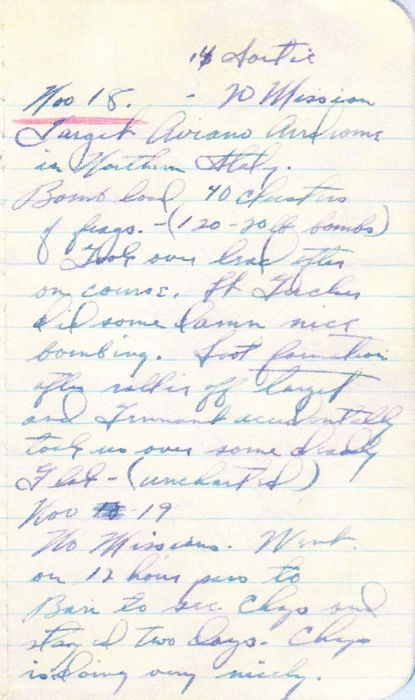 14 Sortie
Nov 18. - 20 Mission
Target Aviano Airdrome
in Northern Italy.
Bomb load 40 clusters
of frags. - (120-20 lb bombs)
Took over lead after
on course. Lt
did some damn nice
bombing. Lost formation
after rallie off target
and accidentally
took us over some deadly
Flak - (uncharted)
Nov 19
No Missions. Went
on 12 hour pass to
Bari to see Chas and
stayed two days. Chas
is doing very nicely.